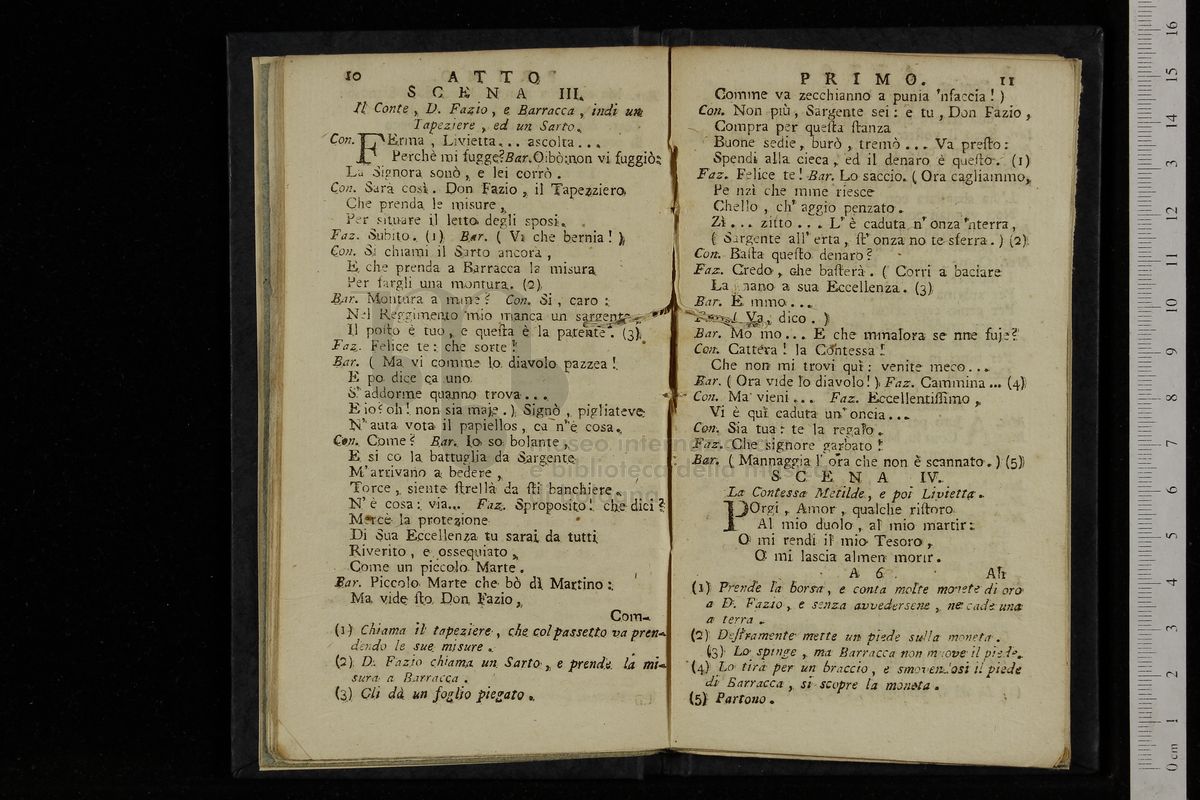 10 ATTO
SCENA III.
Il Conte, D. Fazio, e Barracca, indi un
Tapeziere, ed un Sarto.
Con. FErma, Livietta... ascolta...
Perchè mi fugge? Bar. Oibò: non vi fuggiò:
La Signora sonò, e lei corrò.
Con. Sarà così. Don Fazio, il Tapezziero
Che prenda le misure,
Per situare il letto degli sposi.
Faz. Subito. (1) Bar. (Vi che bernia!)
Con. Si chiami il Sarto ancora,
E che prenda a Barracca la misura
Per fargli una montura. (2)
Bar. Montura a mme? Con. Si, caro:
Nel Reggimento mio manca un sargente,
Il posto è tuo, e questa è la patente. (3)
Faz. Felice te: che sorte!
Bar. (Ma vi comme lo diavolo pazzea!
E po dice ca uno
S'addorme quanno trova...
E io? oh! non sia maje.) Signò, pigliateve
N'auta vota il papiellos, ca n'è cosa.
Con. Come? Bar. Io so bolante,
E si co la battuglia da Sargente
M'arrivano a bedere,
Torce, siente strellà da sti banchiere.
N'è cosa: via... Faz. Sproposito! che dici?
Mercè la protezione
Di Sua Eccellenza tu sarai da tutti
Riverito, e ossequiato,
Come un piccolo Marte.
Bar. Piccolo Marte che bò dì Martino:
Ma vide sto Don Fazio,
Com-
(1) Chiama il tapeziere, che col passetto va pren-
dendo le sue misure.
(2) D. Fazio chiama un Sarto, e prende la mi-
sura a Barracca.
(3) Gli dà un foglio piegato.
PRIMO. 11
Comme va zecchianno a punia 'nfaccia!)
Con. Non più, Sargente sei: e tu, Don Fazio,
Compra per questa stanza
Buone sedie, burò, tremò... Va presto:
Spendi alla cieca, ed il denaro è questo. (1)
Faz. Felice te! Bar. Lo saccio. (Ora cagliammo,
Pe nzì che mme riesce
Chello, ch'aggio penzato.
Zì... zitto... L'è caduta n'onza 'nterra,
(Sargente all'erta, st'onza no te sferra.) (2)
Con. Basta questo denaro?
Faz. Credo, che basterà. (Corri a baciare
La mano a sua Eccellenza. (3)
Bar. E mmo...
Va, dico.)
Bar. Mo mo... E che mmalora se nne fuje?
Con. Cattera! la Contessa!
Che non mi trovi quì: venite meco...
Bar. (Ora vide lo diavolo!) Faz. Cammina... (4)
Con. Ma vieni... Faz. Eccellentissimo,
Vi è quì caduta un'oncia...
Con. Sia tua: te la regalo.
Faz. Che signore garbato!
Bar. (Mannaggia l'ora che non è scannato.) (5)
SCENA IV.
La Contessa Metilde, e poi Livietta.
POrgi, Amor, qualche ristoro
Al mio duolo, al mio martir:
O mi rendi il mio Tesoro,
O mi lascia almen morir.
A 6 Ah
(1) Prende la borsa, e conta molte monete di oro
a D. Fazio, e senza avvedersene, ne cade una
a terra.
(2) Destramente mette un piede sulla moneta.
(3) Lo spinge, ma Barracca non muove il piede.
(4) Lo tira per un braccio, e smovendosi il piede
di Barracca, si scopre la moneta.
(5) Partono.
museo internazionale
e biblioteca della musica
di bologna
0 cm 1 2 3 4 5 6 7 8 9 10 11 12 13 14 15 16